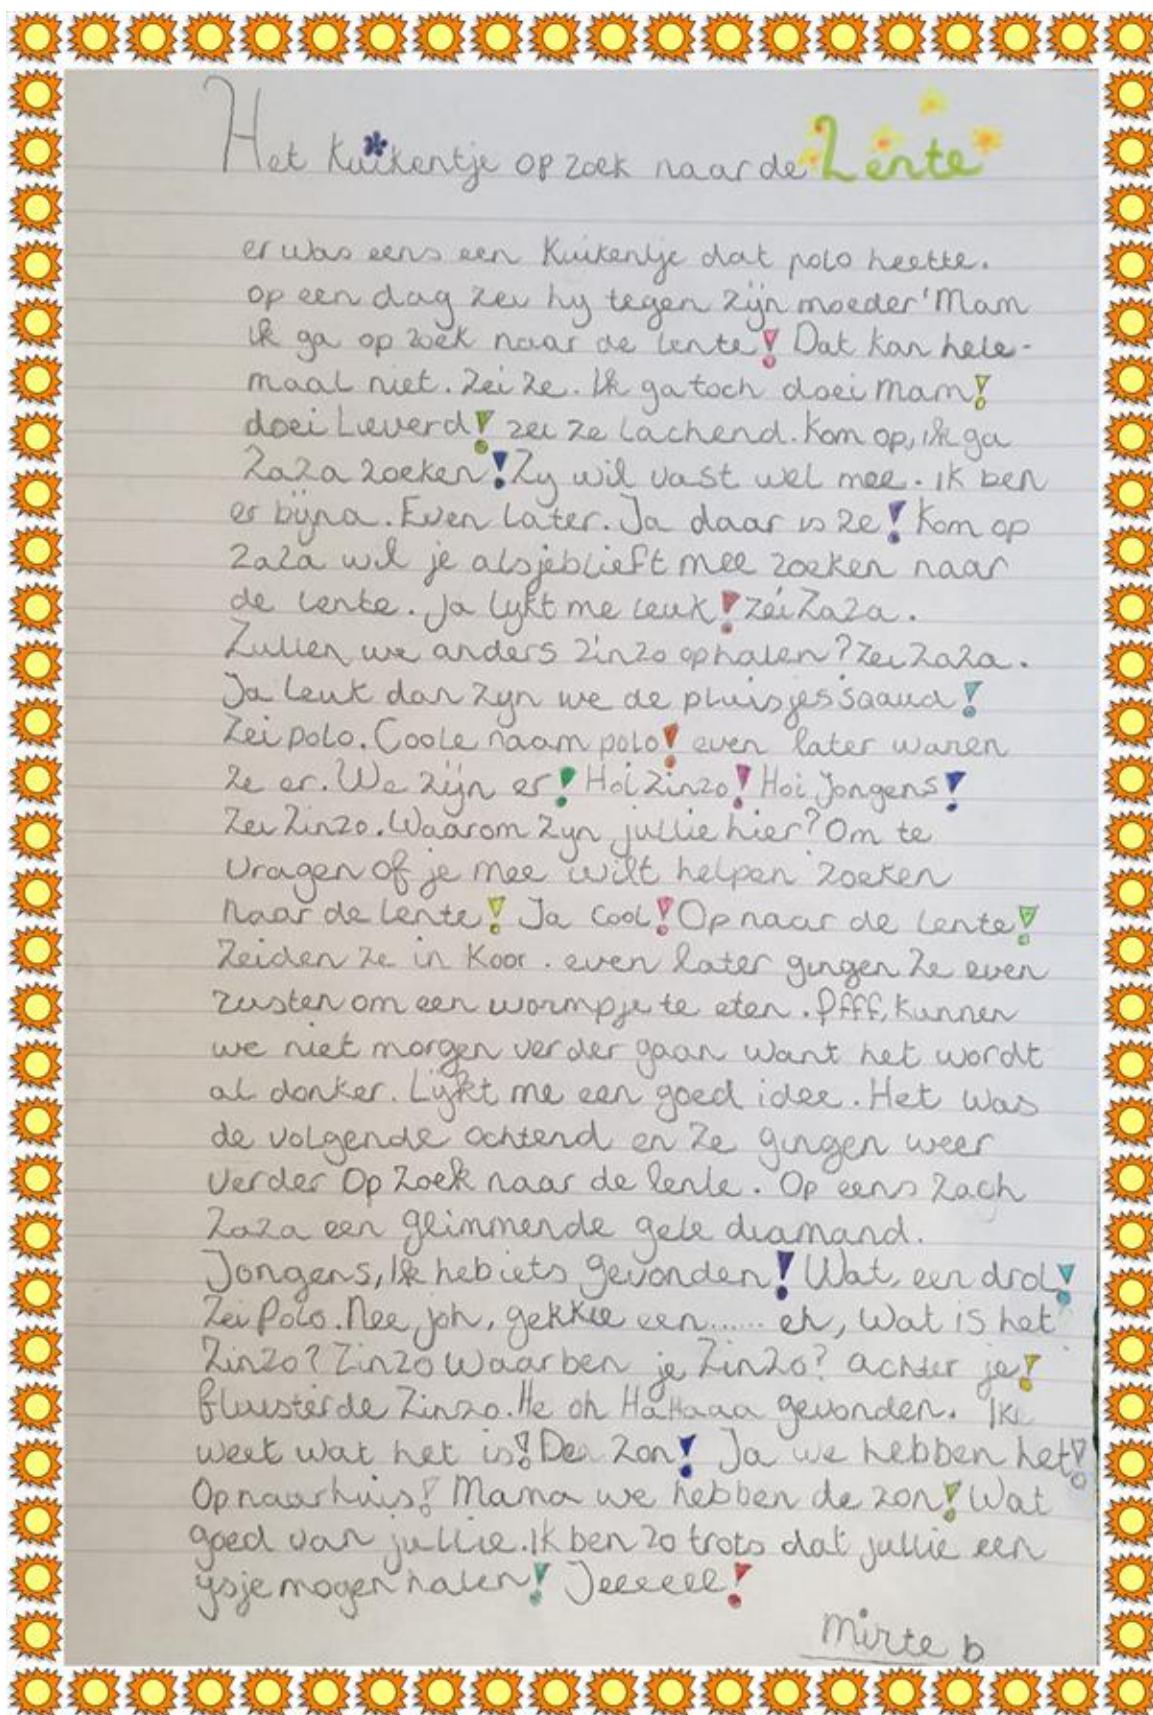 Het kuikentje op zoek naar de Lente
er was eens een Kuikentje dat polo heette.
op een dag zei hy tegen zijn moeder 'Mam
ik ga op zoek naar de lente! Dat kan hele-
maal niet. Zei ze. Ik ga toch doei mam!
doei Lieverd! zei ze lachend. Kom op, ik ga
ZaZa zoeken! Zy wil vast wel mee. ik ben
er bijna. Even later. Ja daar is ze! Kom op
ZaZa wil je alsjeblieft mee zoeken naar
de lente. Ja lykt me leuk! zei ZaZa.
Zullen we anders Zinzo ophalen? Zei ZaZa.
Ja leuk dan zyn we de pluisjes
Zei polo. Coole naam polo! even later waren
ze er. We zijn er! Hoi Zinzo! Hoi Jongens!
Zei Zinzo. Waarom zyn jullie hier? Om te
vragen of je mee wilt helpen zoeken
naar de lente! Ja cool! Op naar de lente!
Zeiden ze in koor. even later gingen ze even
rusten om een wormpje te eten. Pfff, kunnen
we niet morgen verder gaan want het wordt
al donker. Lijkt me een goed idee. Het was
de volgende ochtend en ze gingen weer
verder op zoek naar de lente. Op eens zach
ZaZa een glimmende gele diamand.
Jongens, Ik heb iets gevonden! Wat, een drol!
Zei Polo. Nee joh, gekkie een...... eh, wat is het
Zinzo? Zinzo waar ben je Zinzo? achter je!
fluisterde Zinzo. He oh HaHaaa gevonden. Ik
weet wat het is! De zon! Ja we hebben het!
Op naar huis! Mama we hebben de zon! Wat
goed van jullie. Ik ben zo trots dat jullie een
ysje mogen halen! Jeeeeee!
Mirte b